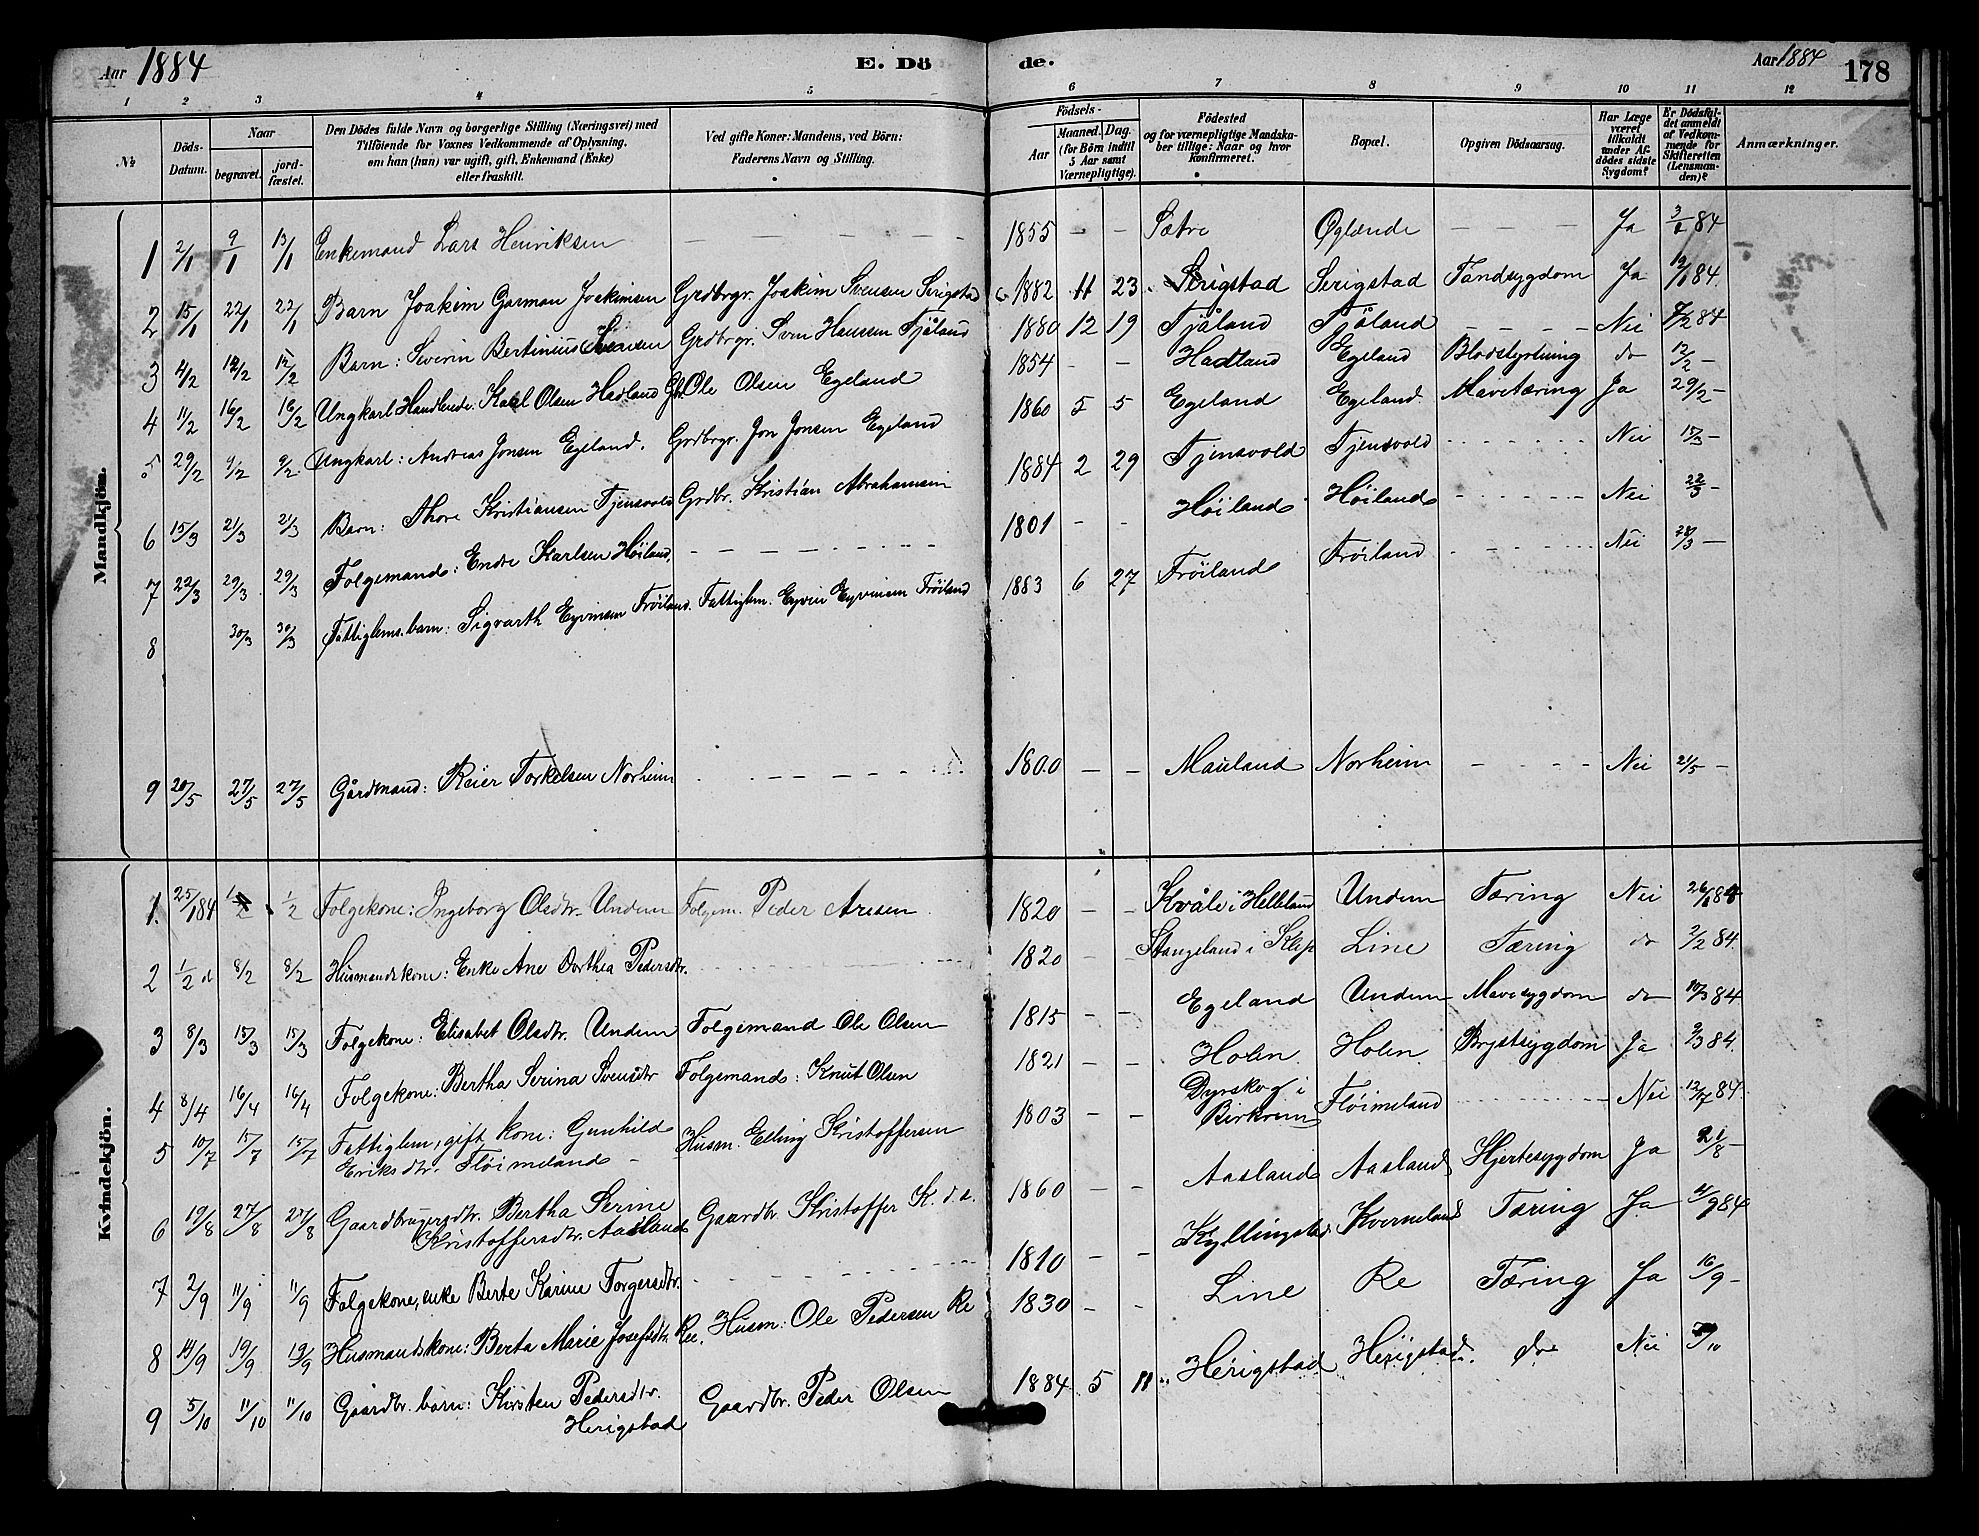 Aar 1884
E. Dö
de.
Aar 1884
178
1 2 3 4 5 6 7 8 9 10 11 12
No
Döds-
Datum.
Naar
begravet.
jord-
fæstet.
Den Dödes fulde Navn og borgerlige Stilling (Næringsvei) med
Tilföiende for Voxnes Vedkommende af Oplysning,
om han (hun) var ugift, gift, Enkemand (Enke)
eller fraskilt.
Ved gifte Koner: Mandens, ved Börn:
Faderens Navn og Stilling.
Födsels-
Aar
Maaned. Dag.
(for Börn indtil
5 Aar samt
Værnepligtige).
Födested
og for værnepligtige Mandska-
ber tillige: Naar og hvor
konfirmeret.
Bopæl.
Opgiven Dödsaarsag.
Har Læge
været
tilkaldt
under Af-
dödes sidste
Sygdom?
Er Dödsfal-
det anmeldt
af Vedkom-
mende for
Skifteretten
(Lensman-
den)?
Anmærkninger.
Mandkjön.
1 2/1 9/1 13/1 Enkemand Lars Henriksen - - - 1855 - - Sætre Øglænde - - - Ja 3/1 84
2 15/1 22/1 22/1 Barn Joakim Garman Joakimsen Grdbrgr. Joakim Svensen Serigstad 1882 11 23 Serigstad Serigstad Tandsygdom Ja 19/1 84.
3 4/2 12/2 12/2 Barn: Severin Bertinius Svensen Grdbrgr. Sven Hansen Tjåland 1880 12 19 Tjåland Tjåland - - - Nei 7/2 84
4 11/2 16/2 16/2 Ungkarl Handlende: Karl Olsen Hadland Gbr. Ole Olsen Egeland 1854 - - Hadland Egeland Blodstyrtning do 12/2 -
5 29/2 9/2 9/2 Ungkarl: Andreas Jonsen Egeland. Grdbrgr. Jon Jonsen Egeland 1860 5 5 Egeland Egeland Mavetæring Ja 29/2 -
6 15/3 21/3 21/3 Barn: Thore Kristiansen Tjensvold Grdbr. Kristian Abrahamsen 1884 2 29 Tjensvold Tjensvold - - - Nei 15/3 -
7 22/3 29/3 29/3 Folgemand: Endre Karlsen Höiland, - - - 1801 - - Höiland Höiland - - - Nei 22/3 -
8 30/3 30/3 Fattiglems. barn: Sigvarth Eyvinsen Fröiland. Fattiglem. Eyvin Eyvinsen Fröiland 1883 6 27 Fröiland Fröiland - - - Nei 28/3 -
9 20/5 27/5 27/5 Gårdmand: Reier Torkelsen Norheim - - - 1800 - - Mauland Norheim - - - Nei 21/5 -
Kvindekjön.
1. 25/1 84 1/2 1/2 Folgekone: Ingeborg Olsdtr. Undem Folgem. Peder Aresen 1820 - - Kvåle i Helleland Undem Tæring Nei 26/1 84
2 1/2 d 8/2 8/2 Husmandskone: Enke Ane Dorthea Pedersdtr. - - - 1820 - - Stangeland i Klep Line Tæring do 2/2 84.
3 8/3 15/3 15/3 Folgekone: Elisabet Olsdtr. Undem Folgemand Ole Olsen 1815 - - Egeland Undem Mavesygdom do 10/3 84
4 8/4 16/4 16/4 Folgekone: Bertha Serina Svensdtr Folgemand: Knut Olsen 1821 - - Holen Holen Brystsygdom Ja 9/3 84.
5 10/7 15/7 15/7 Fattiglem, gift kone: Gunhild Husm. Elling Kristoffersen 1803 - - Dyrskog i Fløimeland - - - Nei 12/7 84.
Eriksdtr. Fløimeland - Birkrem
6 19/8 27/8 27/8 Gaardbrugersdtr. Bertha Serine Gaardbr. Kristoffer K. d. a. 1860 - - Aasland Aasland Hjertesygdom Ja 21/8 -
Kristoffersdtr. Aasland
7 2/9 11/9 11/9 Folgekone, enke Berte Karine Torgersdtr. - - - 1810 - - Kyllingstad. Kverneland Tæring Ja 4/9 84
8 14/9 19/9 19/9 Husmandskone: Berta Marie Josefsdtr. Re. Husm: Ole Pedersen Re 1830 - - Line Re Tæring Ja 16/9 -
9 5/10 11/10 11/10 Gaardbr. barn: Kirsten Pedersdtr. Gaardbr. Peder Olsen 1884 5 11 Herigstad Herigstad do Nei
Herigstad